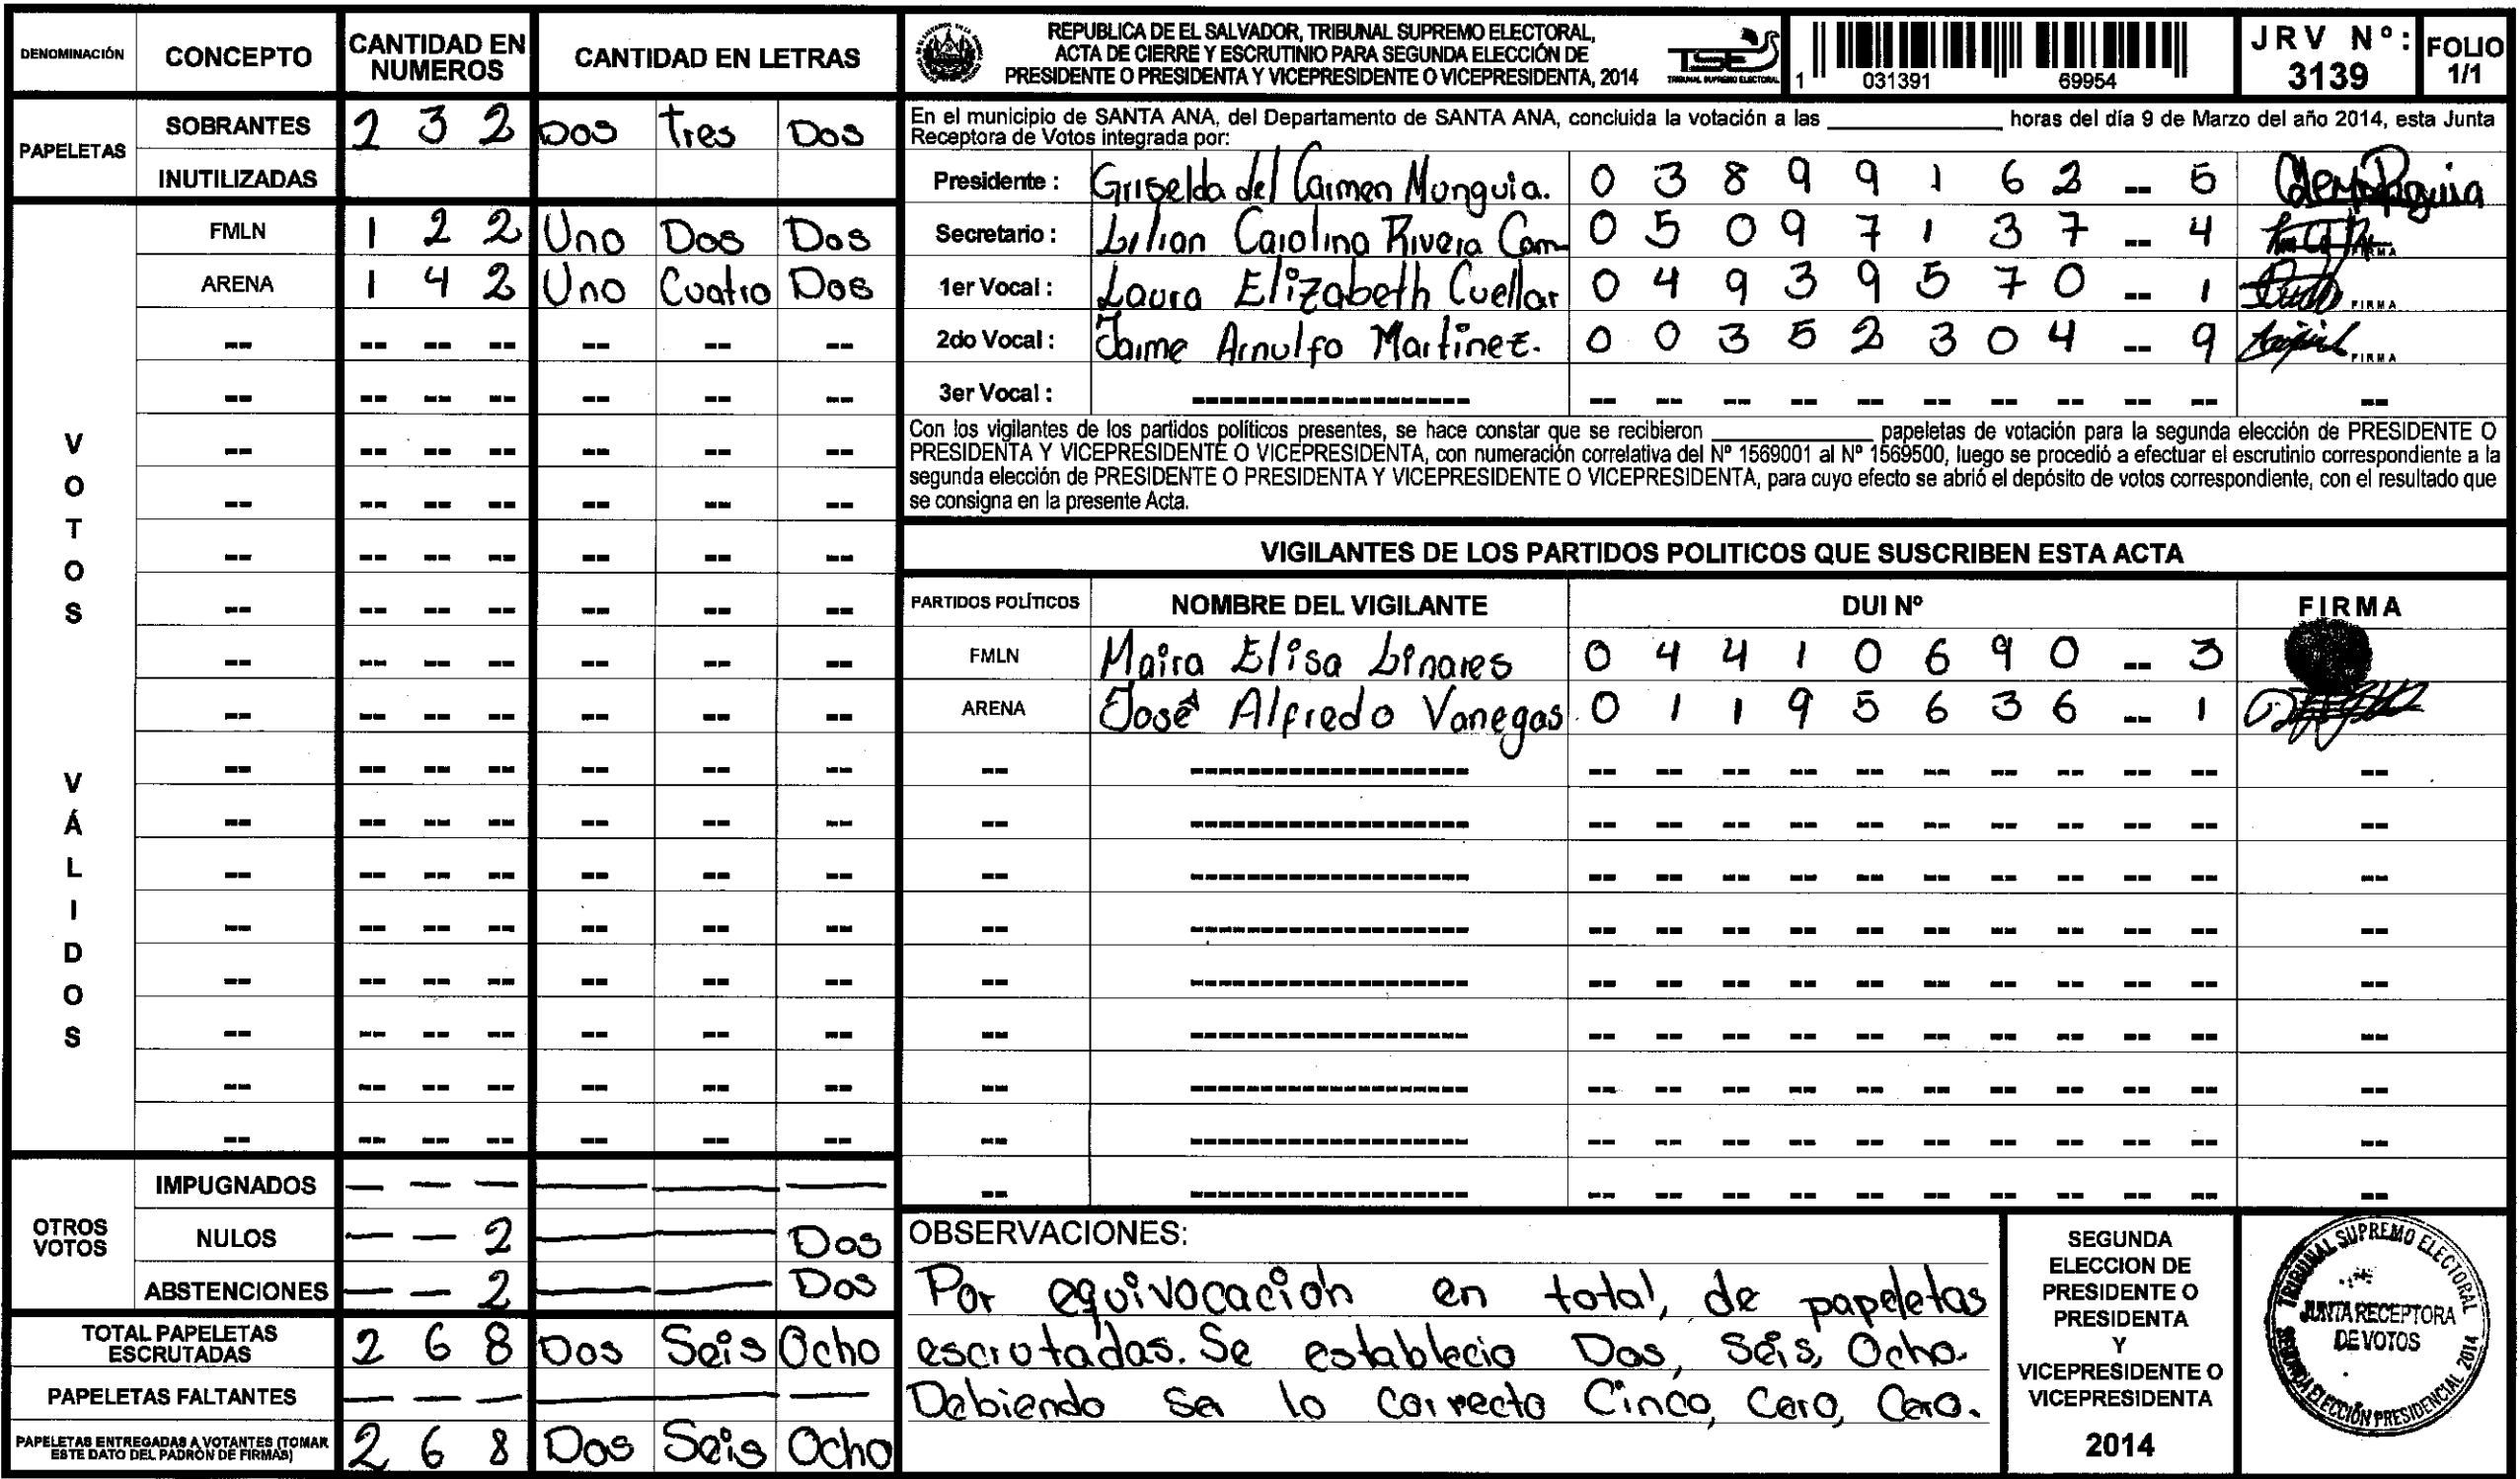 DENOMINACIÓN CONCEPTO CANTIDAD EN NUMEROS CANTIDAD EN LETRAS
PAPELETAS
SOBRANTES 2 3 2 Dos Tres Dos
INUTILIZADAS
VOTOS VÁLIDOS
FMLN 1 2 2 Uno Dos Dos
ARENA 1 4 2 Uno Cuatro Dos
OTROS VOTOS
IMPUGNADOS — — — — — —
NULOS — — 2 — — Dos
ABSTENCIONES — — 2 — — Dos
TOTAL PAPELETAS ESCRUTADAS 2 6 8 Dos Seis Ocho
PAPELETAS FALTANTES — — — — — —
PAPELETAS ENTREGADAS A VOTANTES (TOMAR ESTE DATO DEL PADRÓN DE FIRMAS) 2 6 8 Dos Seis Ocho
REPUBLICA DE EL SALVADOR, TRIBUNAL SUPREMO ELECTORAL,
ACTA DE CIERRE Y ESCRUTINIO PARA SEGUNDA ELECCIÓN DE
PRESIDENTE O PRESIDENTA Y VICEPRESIDENTE O VICEPRESIDENTA, 2014
TSE
TRIBUNAL SUPREMO ELECTORAL
1 031391 69954
JRV Nº: 3139
FOLIO 1/1
En el municipio de SANTA ANA, del Departamento de SANTA ANA, concluida la votación a las ____________ horas del día 9 de Marzo del año 2014, esta Junta
Receptora de Votos integrada por:
Presidente : Griselda del Carmen Munguia. 0 3 8 9 9 1 6 2 -- 5
Secretario : Lilian Carolina Rivera Cam 0 5 0 9 7 1 3 7 -- 4 FIRMA
1er Vocal : Laura Elizabeth Cuellar 0 4 9 3 9 5 7 0 -- 1 FIRMA
2do Vocal : Jaime Arnulfo Martinez. 0 0 3 5 2 3 0 4 -- 9 FIRMA
3er Vocal : -------------------- -- -- -- -- -- -- -- -- -- -- --
Con los vigilantes de los partidos políticos presentes, se hace constar que se recibieron ____________ papeletas de votación para la segunda elección de PRESIDENTE O
PRESIDENTA Y VICEPRESIDENTE O VICEPRESIDENTA, con numeración correlativa del Nº 1569001 al Nº 1569500, luego se procedió a efectuar el escrutinio correspondiente a la
segunda elección de PRESIDENTE O PRESIDENTA Y VICEPRESIDENTE O VICEPRESIDENTA, para cuyo efecto se abrió el depósito de votos correspondiente, con el resultado que
se consigna en la presente Acta.
VIGILANTES DE LOS PARTIDOS POLITICOS QUE SUSCRIBEN ESTA ACTA
PARTIDOS POLÍTICOS NOMBRE DEL VIGILANTE DUI Nº FIRMA
FMLN Maira Elisa Linares 0 4 4 1 0 6 9 0 -- 3
ARENA José Alfredo Vanegas 0 1 1 9 5 6 3 6 -- 1
OBSERVACIONES:
Por equivocación en total, de papeletas
escrutadas. Se establecio Dos, Seis, Ocho.
Debiendo ser lo correcto Cinco, Cero, Cero.
SEGUNDA
ELECCION DE
PRESIDENTE O
PRESIDENTA
Y
VICEPRESIDENTE O
VICEPRESIDENTA
2014
TRIBUNAL SUPREMO ELECTORAL
JUNTA RECEPTORA
DE VOTOS
SEGUNDA ELECCIÓN PRESIDENCIAL 2014